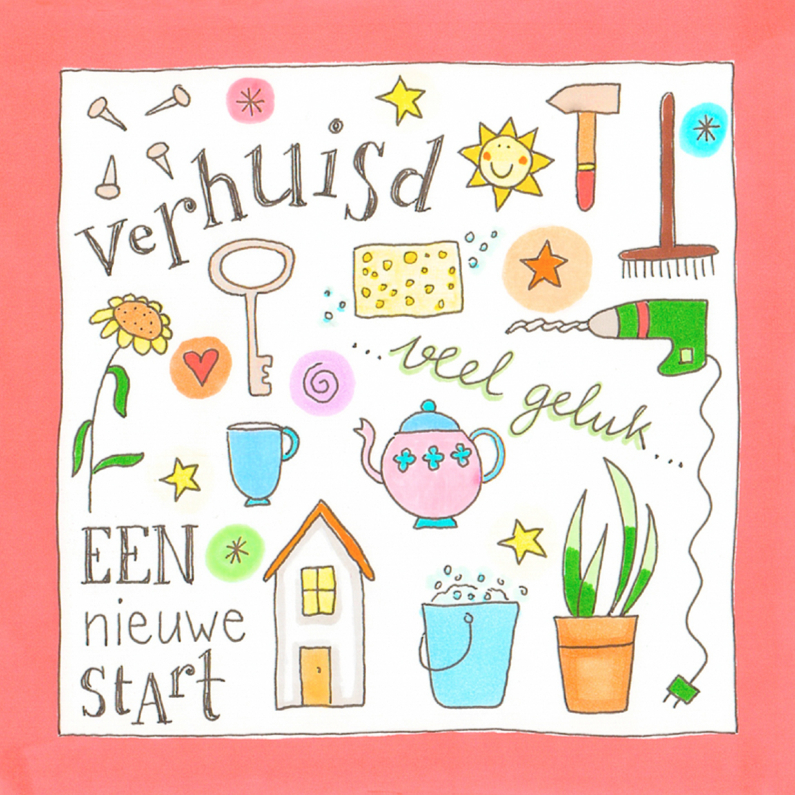 verhuisd
...veel geluk...
EEN
nieuwe
start